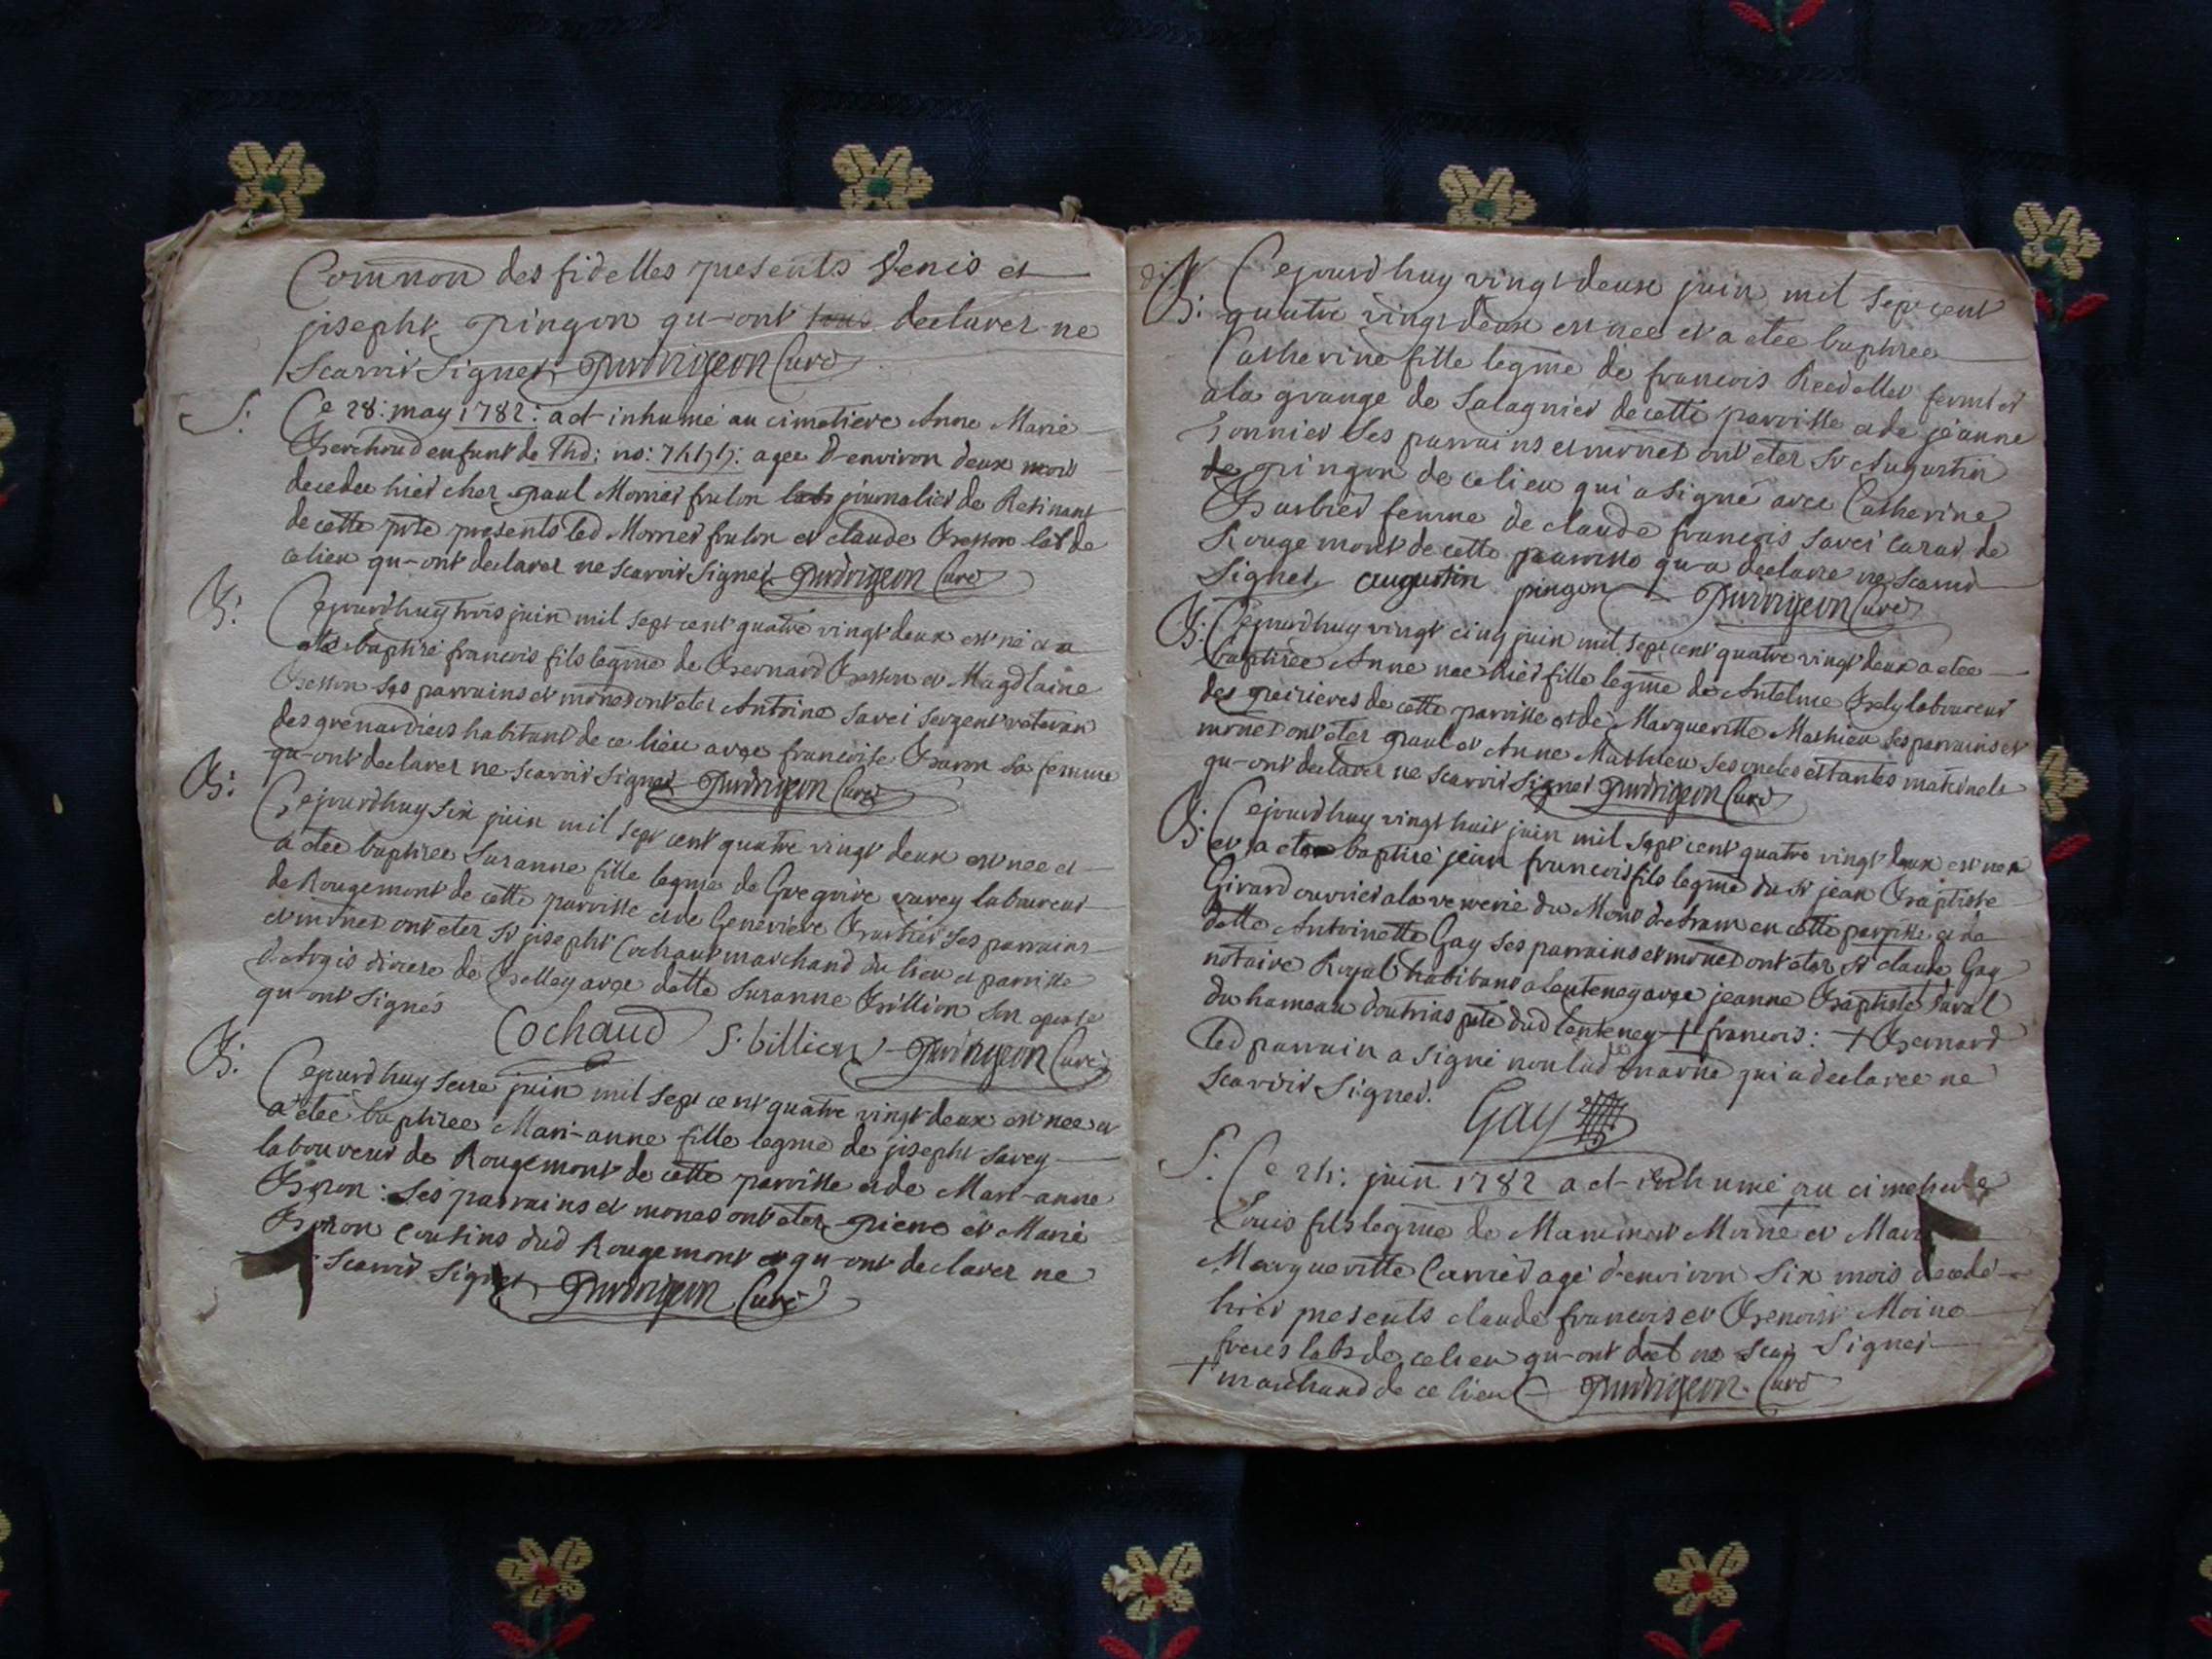 Common des fidelles presents Denis et
josepht pingon qu-ont tous declarer ne
scavoir signer Curé
S: Ce 28: may 1782: a et inhumé au cimetiere Anne Marie
Berchoud enfant de Thd: no: agee d-environ deux mois
decedee hier chez paul Mornier foulon lab journalier de
de cette pste presents led Mornier foulon et claude Besson lab de
ce lieu qu-ont declarer ne scavoir signer Curé
B: Cejourdhuy trois juin mil sept cent quatre vingt deux est né et a
eté baptisé francois fils legme de Bernard Besson et Magdlaine
Besson ses parrains et mrnes ont eter Antoine savei sergent veteran
des grenardiers habitant de ce lieu avec francoise Baron sa femme
qu-ont declarer ne scavoir signer Curé
B: Cejourdhuy six juin mil sept cent quatre vingt deux est nee et
a etee baptisee Suzanne fille legme de Gregoire savey laboureur
de Rougemont de cette parroisse et de Genevieve Barbier ses parrains
et mrnes ont eter sr josepht Cochaud marchand du lieu et parroisse
d-Argis diocese de Belley avec dette Suzanne Billion son epouse
qu-ont signés Cochaud S. billion Curé
B: Cejourdhuy seize juin mil sept cent quatre vingt deux est nee et
a etee baptisee Mari-anne fille legme de josepht savey
laboureur de Rougemont de cette parroisse et de Mari-anne
: ses parrains et mrnes ont eter pierre et Marie
cousins dud Rougemont qu-ont declarer ne
scavoir signer Curé
B: Cejourdhuy vingt deux juin mil sept cent
quatre vingt deux est nee et a etee baptisee
Catherine fille legme de francois fermier
a la grange de Salagnier de cette parroisse et de jeanne
ses parrains et mrnes ont eter sr Augustin
de pingon de ce lieu qui a signé avec Catherine
Barbier femme de claude francois savei de
Rougemont de cette parroisse qu-a declaré ne scavoir
signer augustin pingon Curé
B: Cejourdhuy vingt cinq juin mil sept cent quatre vingt deux a etee
baptisee Anne nee hier fille legme de Antelme Bely laboureur
des de cette parroisse et de Margueritte Mathieu ses parrains et
mrnes ont eter paul et Anne Mathieu ses oncles et tantes maternels
qu-ont declarer ne scavoir signer Curé
B: Cejourdhuy vingt huit juin mil sept cent quatre vingt deux est né
et a eter baptisé jean francois fils legme du sr jean Baptiste
Girard ouvrier a la verrerie du en cette parroisse et de
dette Antoinette Gay ses parrains et mrnes ont eter sr claude Gay
notaire Royal habitant a lanteney avec jeanne Baptiste
du hameau doutrias pste dud lenteney + francois: + Bernard
led parrain a signé non lad marne qui a declaree ne
scavoir signer.
Gay
S: Ce 24: juin 1782 a et inhumé au cimetiere
Louis fils legme de Moine et
Margueritte Carrier agé d-environ six mois decedé
hier presents claude francois et Benoist Moine
freres labs de ce lieu qu-ont decl ne scav signer
+ marchand de ce lieu Curé